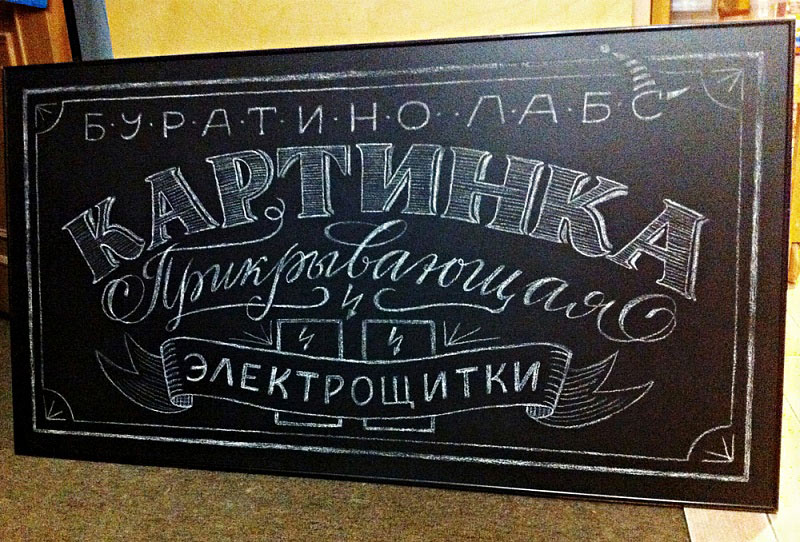 Б·У·Р·А·Т·И·Н·О Л·А·Б·С
КАРТИНКА
Прикрывающая
ЭЛЕКТРОЩИТКИ